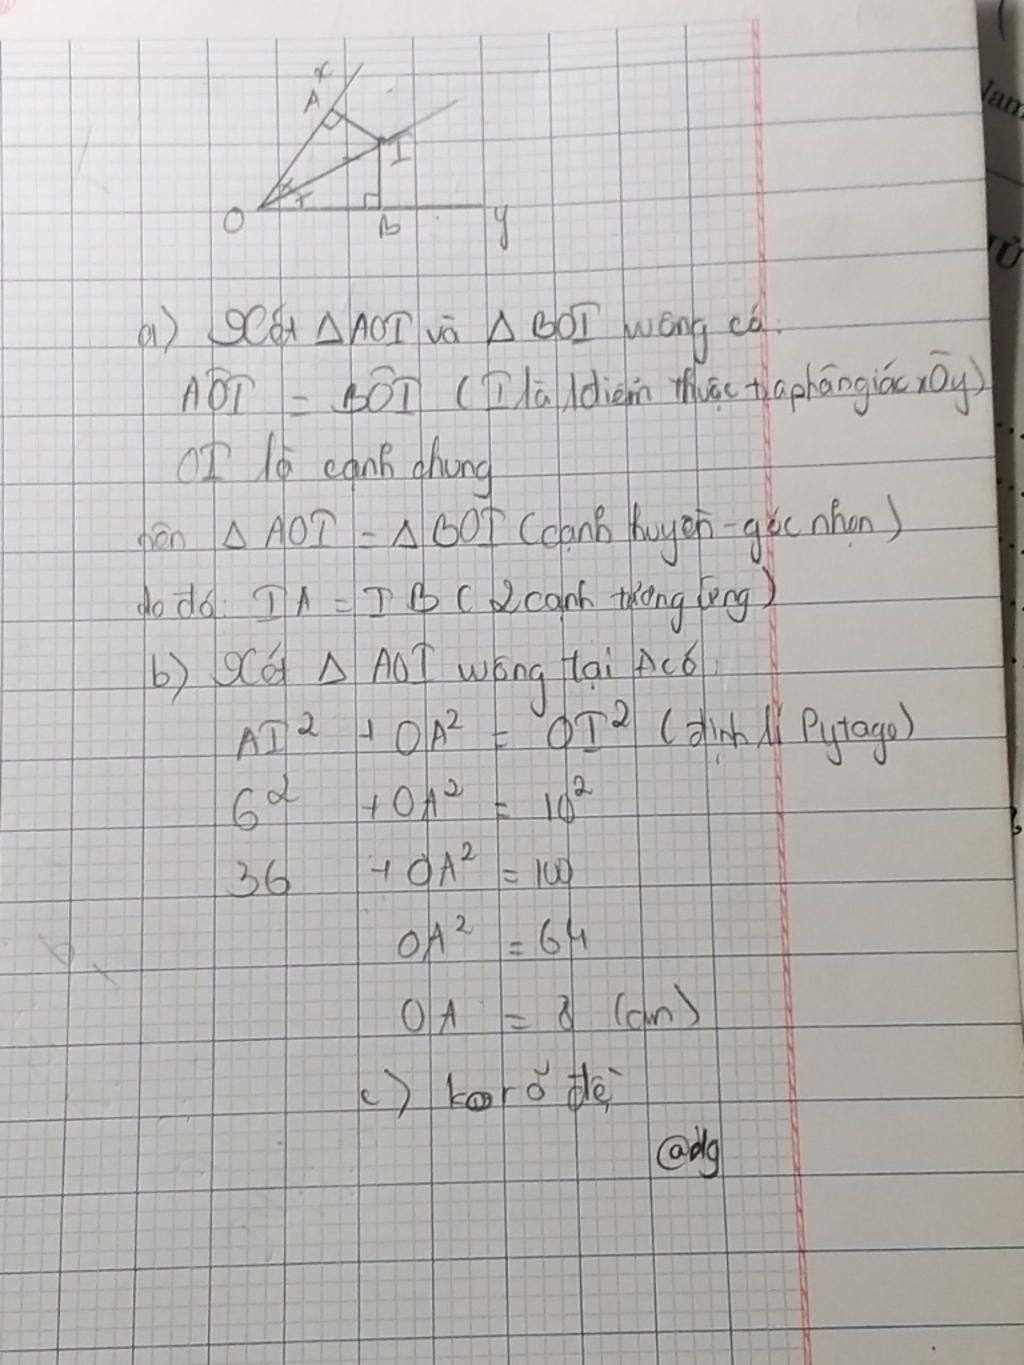 x
A
I
O
B
y
a) Xét △AOI và △BOI vuông có:
AÔI = BÔI (I là 1 điểm thuộc tia phân giác xÔy)
OI là cạnh chung
nên △AOI = △BOI (cạnh huyền - góc nhọn)
do đó: IA = IB (2 cạnh tương ứng)
b) Xét △ AOI vuông tại A có:
AI² + OA² = OI² (định lí Pytago)
6² + OA² = 10²
36 + OA² = 100
OA² = 64
OA = 8 (cm)
c) ko rõ đề
@dg